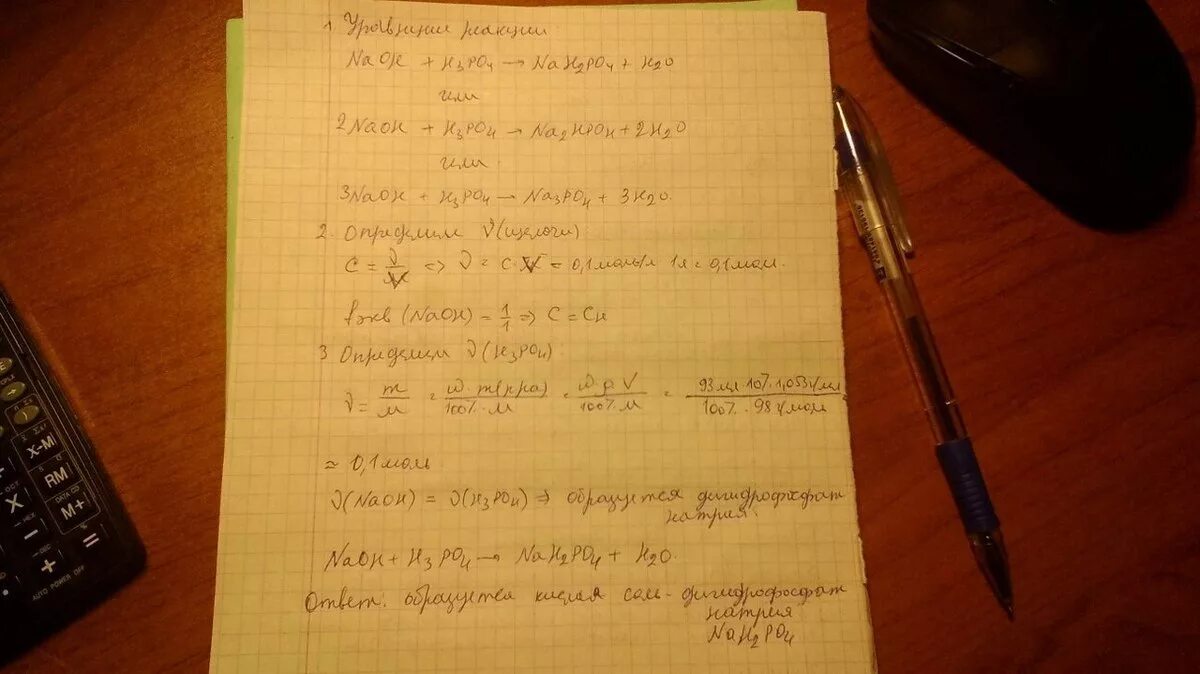 1 Уравнение реакции
NaOH + H3PO4 → NaH2PO4 + H2O
или
2NaOH + H3PO4 → Na2HPO4 + 2H2O
или
3NaOH + H3PO4 → Na3PO4 + 3H2O.
2. Определим ν(щелочи)
C = ν/V => ν = C·V = 0,1моль/л 1л = 0,1мол.
fэкв (NaOH) = 1/1 => C = Cн
3 Определим ν(H3PO4)
ν = m/M = ω·m(р-ра)/100%·M = ω·ρ·V/100%·M = 93мл·10%·1,053г/мл/100%·98г/моль
≈ 0,1моль
ν(NaOH) = ν(H3PO4) => образуется дигидрофосфат
натрия.
NaOH + H3PO4 → NaH2PO4 + H2O.
Ответ: образуется кислая соль - дигидрофосфат
натрия
NaH2PO4
X-M
RM
DATA CD
M+
X
HEX
−
=
+
AUTO POWER OFF